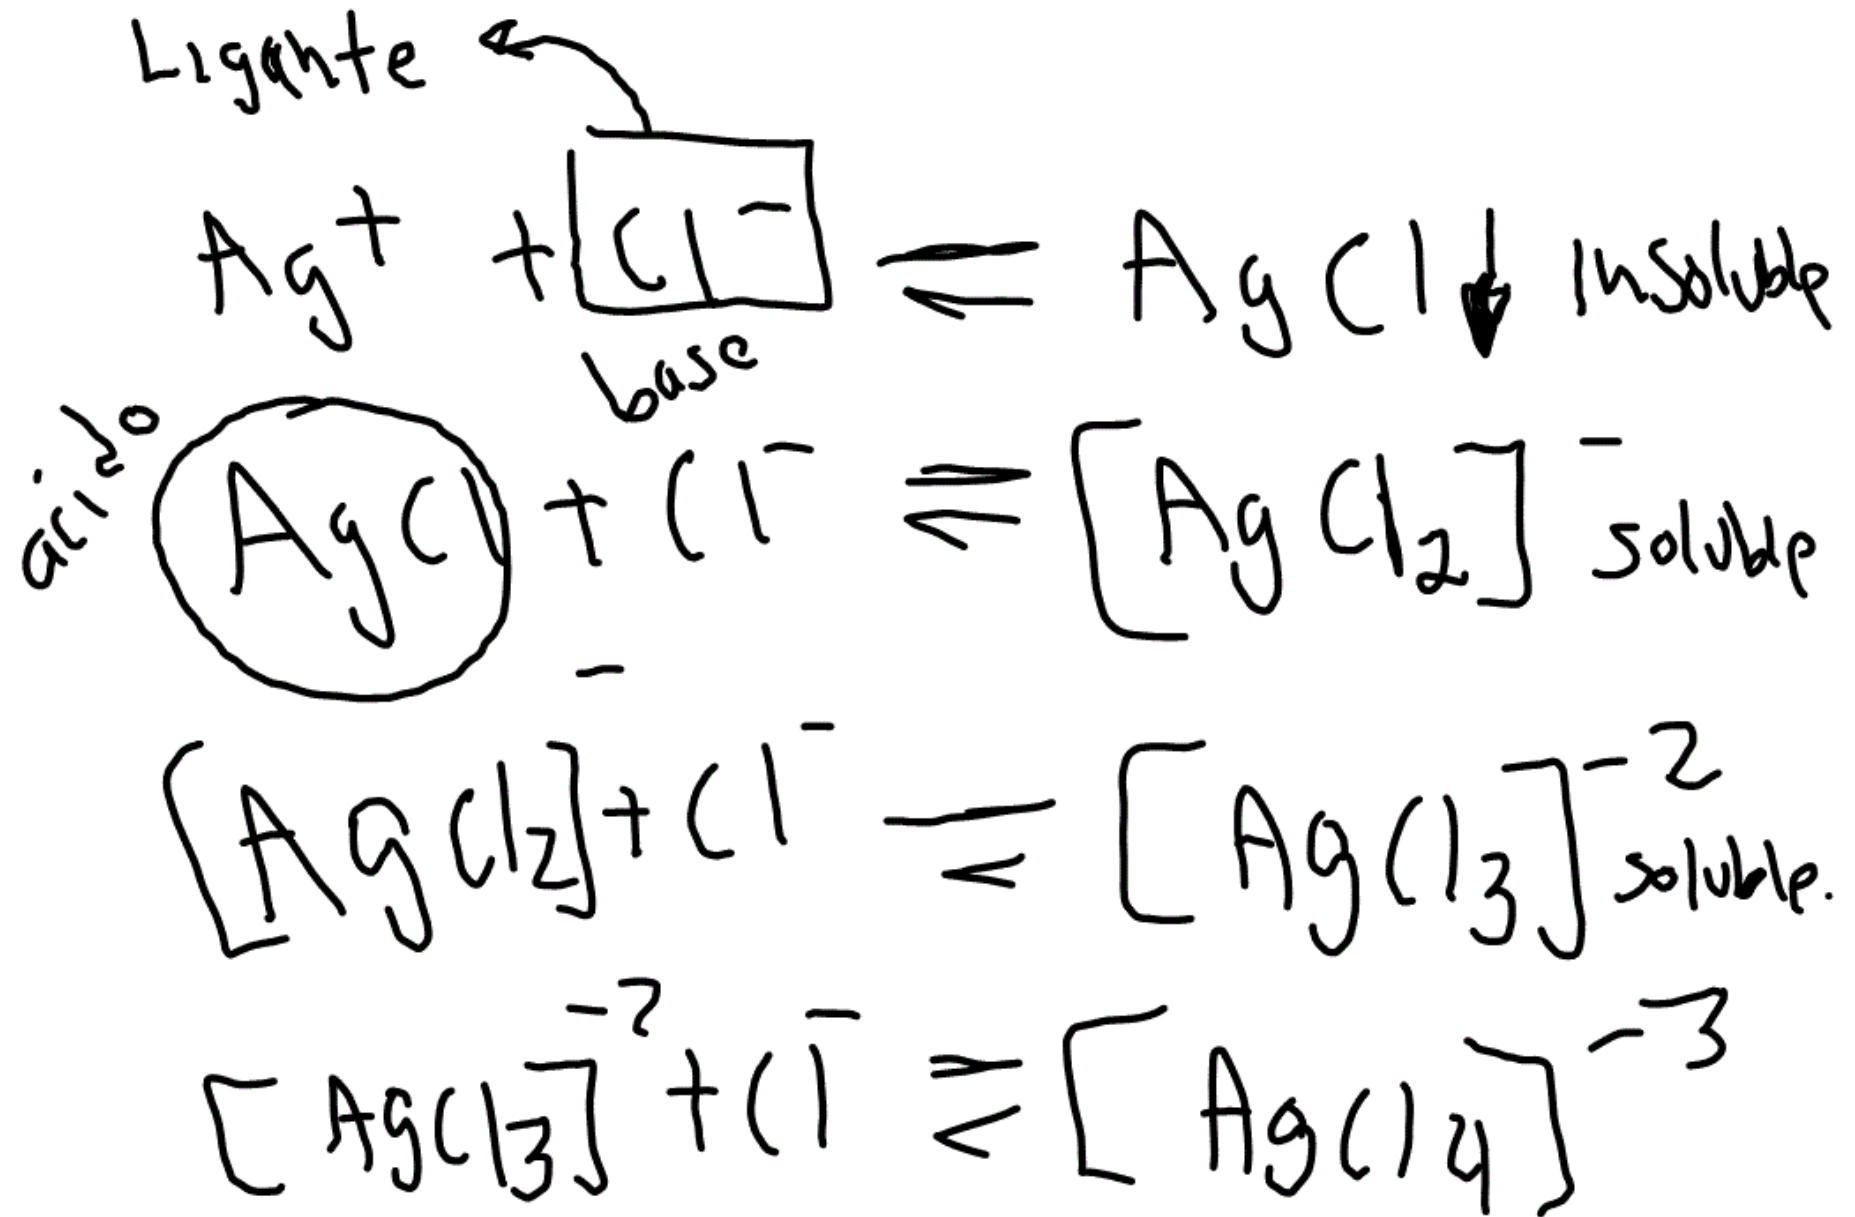 Ligante
Ag⁺ + Cl⁻ ⇌ AgCl↓ insoluble
base
acido
AgCl + Cl⁻ ⇌ [AgCl₂]⁻ soluble
[AgCl₂]⁻ + Cl⁻ ⇌ [AgCl₃]⁻² soluble.
[AgCl₃]⁻² + Cl⁻ ⇌ [AgCl₄]⁻³